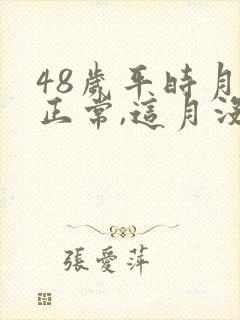 48歲平時月
正常,這月沒
張愛萍